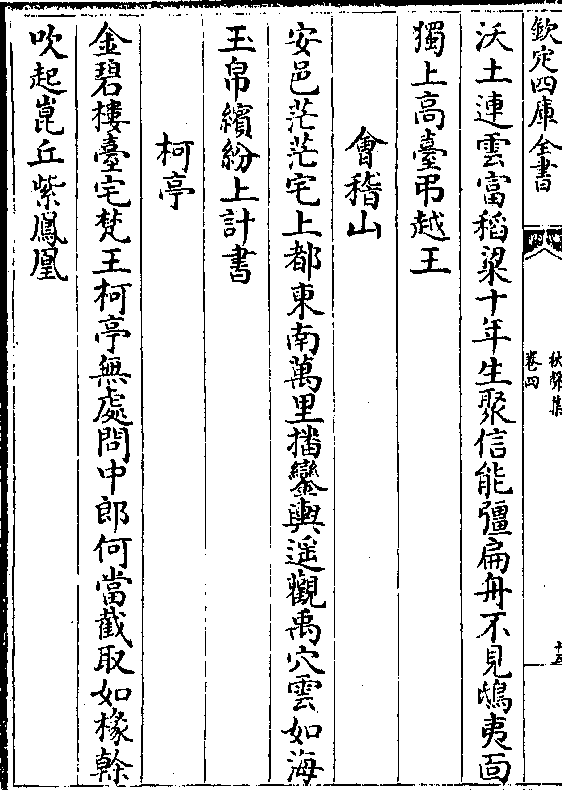 欽定四庫全書
秋聲集
卷四
十五
沃土連雲富稻粱十年生聚信能彊扁舟不見鴟夷面
獨上高臺弔越王
會稽山
安邑茫茫宅上都東南萬里播鑾輿遥觀禹穴雲如海
玉帛繽紛上計書
柯亭
金碧樓臺宅梵王柯亭無處問中郎何當截取如椽幹
吹起崑丘紫鳳凰